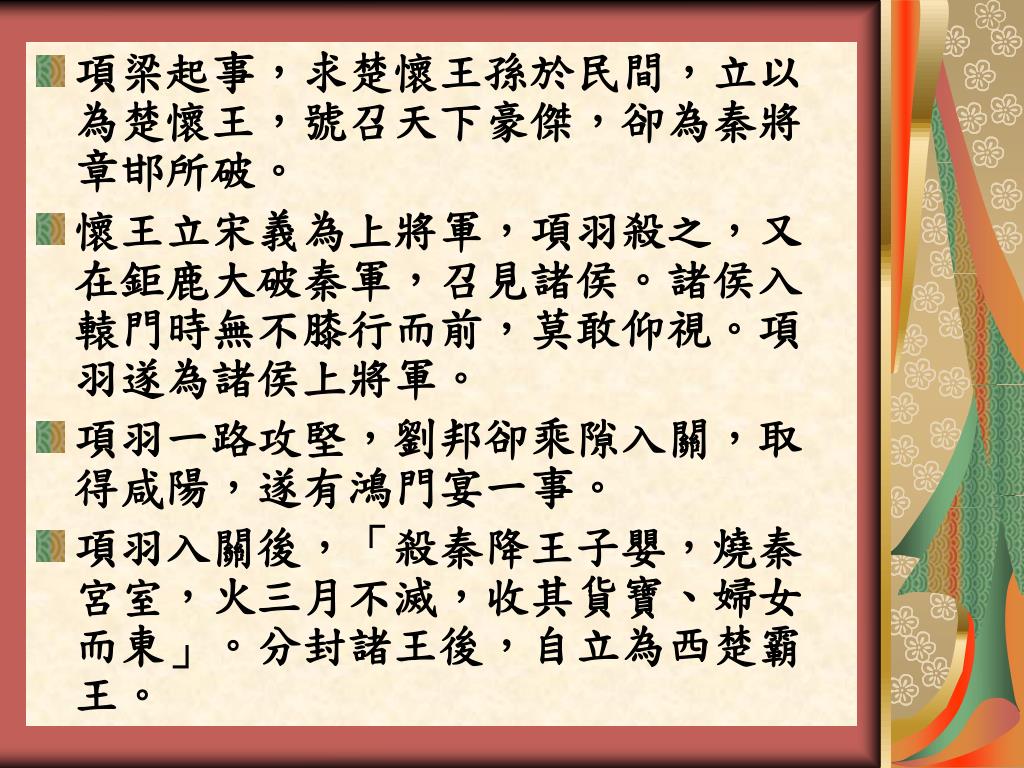 項梁起事，求楚懷王孫於民間，立以
為楚懷王，號召天下豪傑，卻為秦將
章邯所破。
懷王立宋義為上將軍，項羽殺之，又
在鉅鹿大破秦軍，召見諸侯。諸侯入
轅門時無不膝行而前，莫敢仰視。項
羽遂為諸侯上將軍。
項羽一路攻堅，劉邦卻乘隙入關，取
得咸陽，遂有鴻門宴一事。
項羽入關後，「殺秦降王子嬰，燒秦
宮室，火三月不滅，收其貨寶、婦女
而東」。分封諸王後，自立為西楚霸
王。